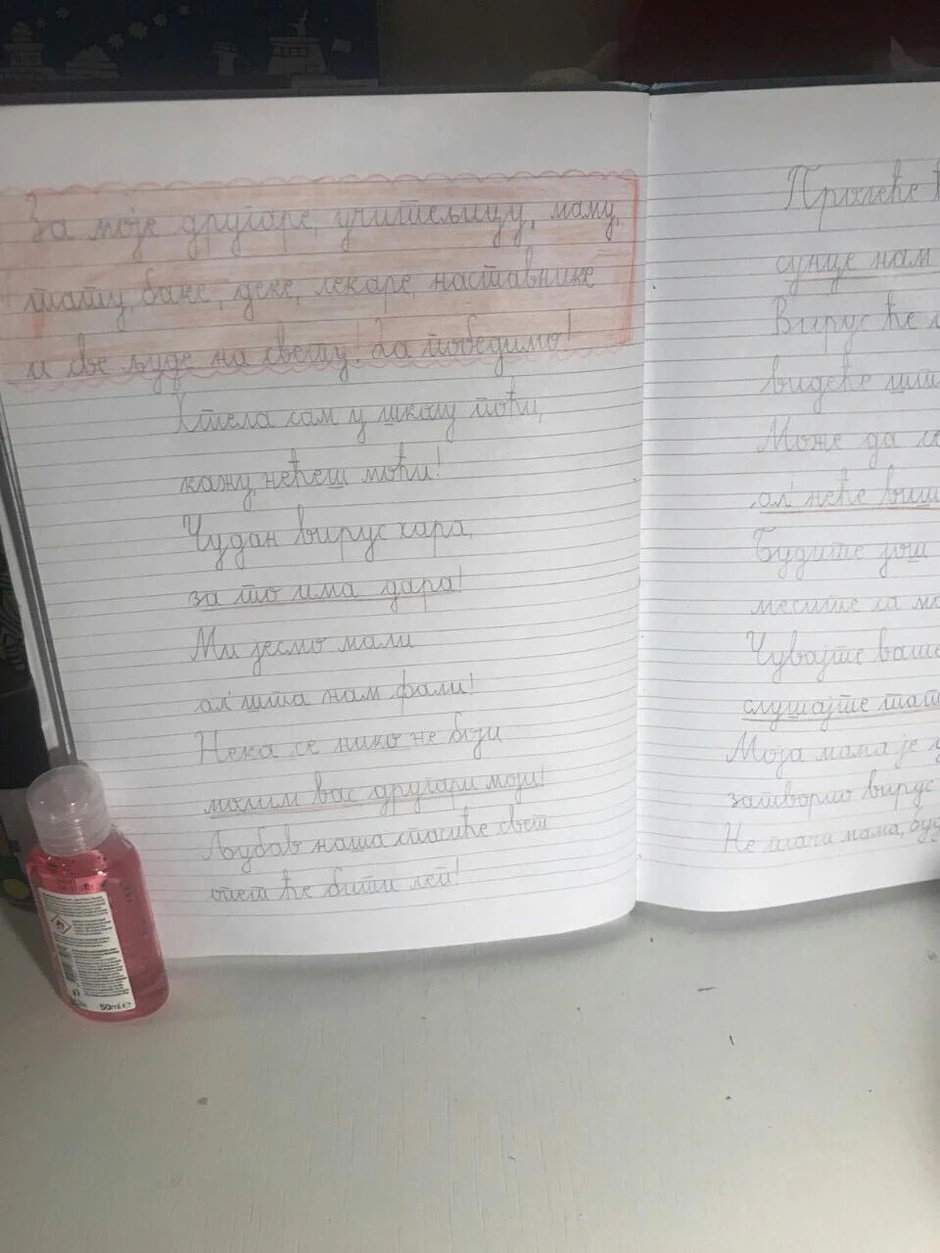 За моје другаре, учитељицу, маму,
тату, баке, деке, лекаре, наставнике
и све људе на свету! Да победимо!
Хтела сам у школу поћи,
кажу, нећеш моћи!
Чудан вирус хара,
за то има дара!
Ми јесмо мали
ал' шта нам фали!
Нека се нико не боји
молим вас другари моји!
Љубав наша спасиће свет
опет ће бити леп!
Пролеће
сунце нам
Вирус ће
видеће
Може да
ал' неће
Будите још
месите са
Чувајте ваше
слушајте
Моја мама је
затворио вирус
Не плачи мама,
50ml e